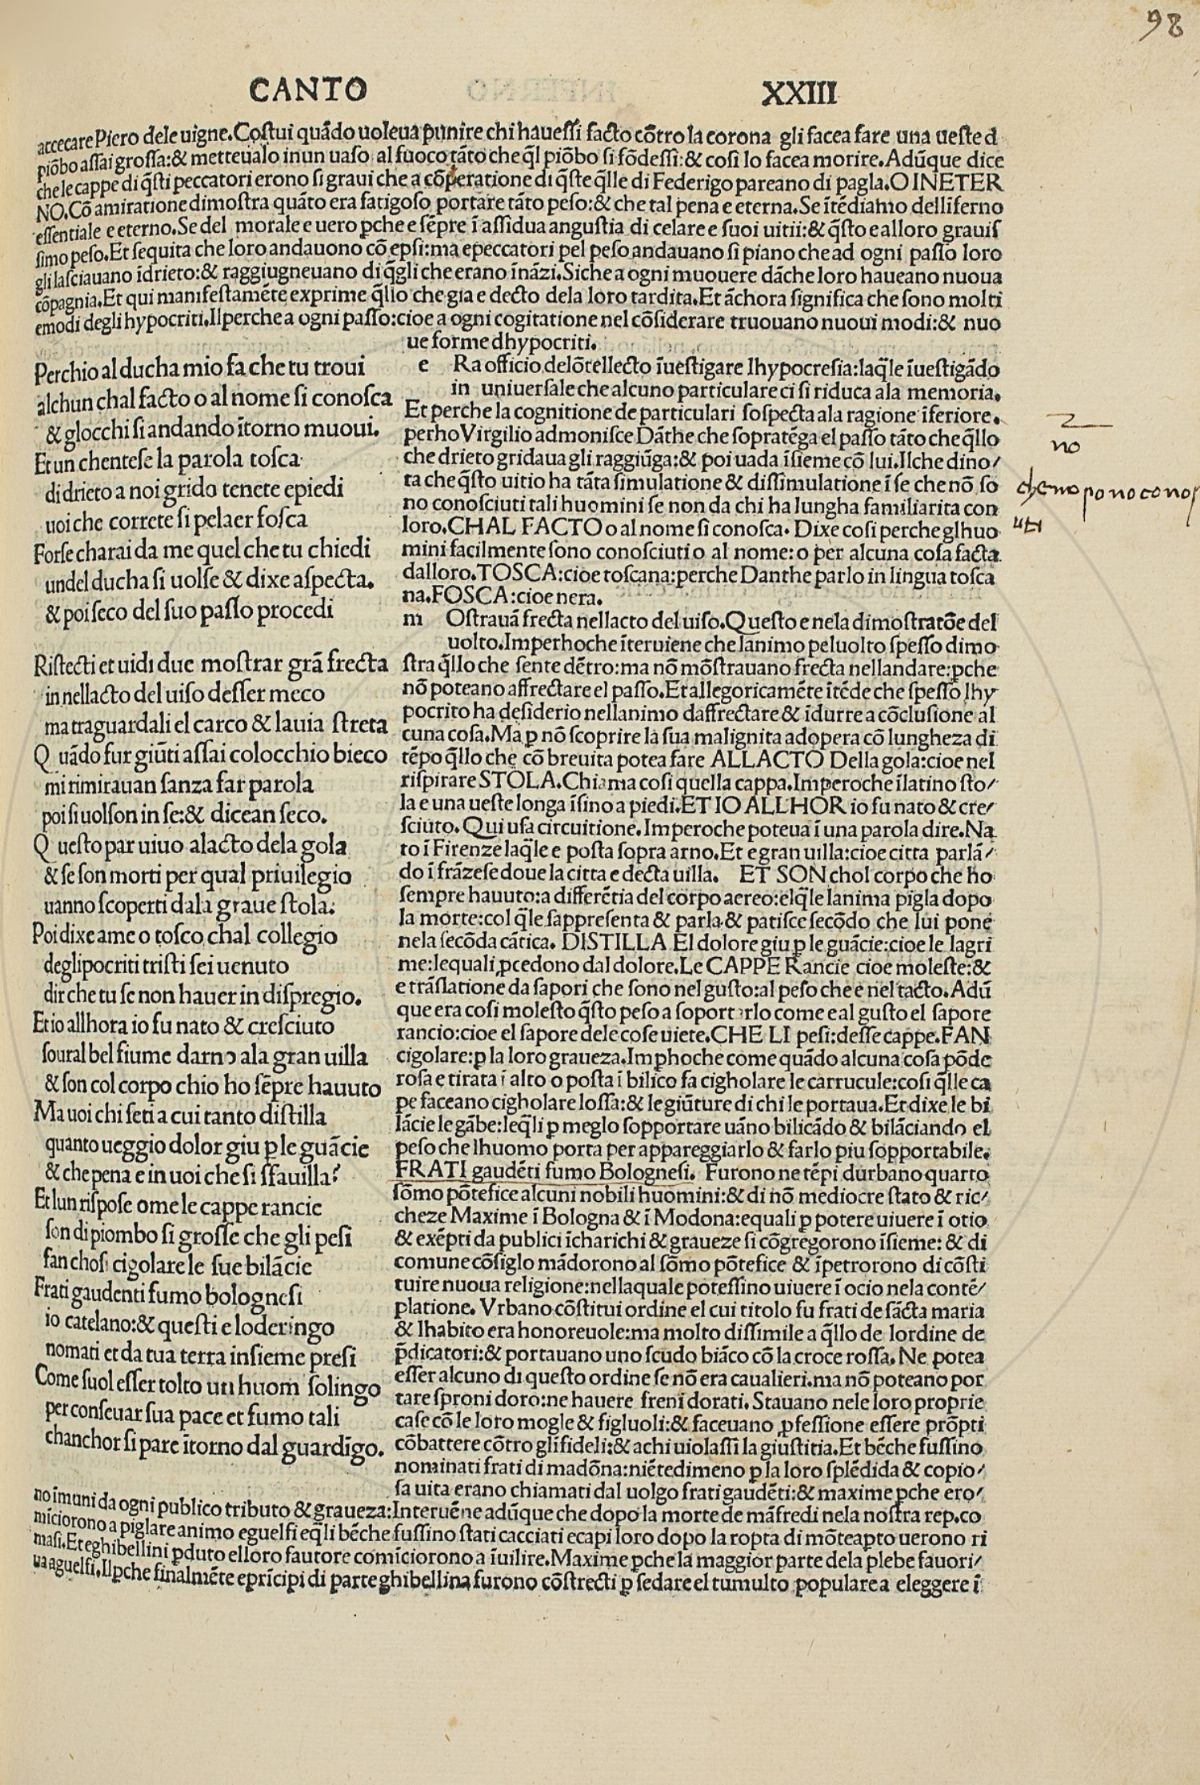 98
CANTO XXIII
accecare Piero dele uigne.Costui quãdo uoleua punire chi hauessi facto cõtro la corona gli facea fare una ueste d
piõbo assai grossa:& metteualo inun uaso al fuoco tãto che q̃l piõbo si fõdessi:& cosi lo facea morire.Adũque dice
che le cappe di q̃sti peccatori erono si graui che a cõperatione di q̃ste q̃lle di Federigo pareano di pagla.O INETER
NO.Cõ amiratione dimostra quãto era fatigoso portare tãto peso:& che tal pena e eterna.Se ĩtẽdiamo dellĩferno
essentiale e eterno.Se del morale e uero ꝑche e sẽpre ĩ assidua angustia di celare e suoi uitii:& q̃sto e alloro grauis
simo peso.Et sequita che loro andauono cõ epsi:ma epeccatori pel peso andauano si piano che ad ogni passo loro
gli lasciauano ĩdrieto:& raggiugneuano di q̃gli che erano ĩnãzi.Siche a ogni muouere dãche loro haueano nuoua
cõpagnia.Et qui manifestamẽte exprime q̃llo che gia e decto dela loro tardita.Et ãchora significa che sono molti
emodi degli hypocriti.Ilperche a ogni passo:cioe a ogni cogitatione nel cõsiderare truouano nuoui modi:& nuo
ue forme dhypocriti.
Perchio al ducha mio fa che tu troui
alchun chal facto o al nome si conosca
& glocchi si andando ĩtorno muoui.
Et un chentese la parola tosca
di drieto a noi grido tenete epiedi
uoi che correte si pelaer fosca
Forse charai da me quel che tu chiedi
undel ducha si uolse & dixe aspecta.
& poi seco del suo passo procedi
Ristecti et uidi due mostrar grã frecta
in nellacto del uiso desser meco
ma traguardali el carco & lauia streta
Q uãdo fur giũti assai colocchio bieco
mi rimirauan sanza far parola
poi si uolson in se:& dicean seco.
Q uesto par uiuo alacto dela gola
& se son morti per qual priuilegio
uanno scoperti dala graue stola:
Poi dixe ame o tosco chal collegio
deglipocriti tristi sei uenuto
dir che tu se non hauer in dispregio.
Et io allhora io fu nato & cresciuto
soural bel fiume darno ala gran uilla
& son col corpo chio ho sẽpre hauuto
Ma uoi chi seti a cui tanto distilla
quanto ueggio dolor giu ꝑ le guãcie
& che pena e in uoi che si sfauilla?
Et lun rispose ome le cappe rancie
son di piombo si grosse che gli pesi
fan chosi cigolare le sue bilãcie
Frati gaudenti fumo bolognesi
io catelano:& questi e loderingo
nomati et da tua terra insieme presi
Come suol esser tolto un huom solingo
per conseuar sua pace et fumo tali
chanchor si pare ĩtorno dal guardĩgo.
e Ra officio delõtellecto ĩuestigare lhypocresia:laq̃le ĩuestigãdo
in uniuersale che alcuno particulare ci si riduca ala memoria.
Et perche la cognitione de particulari sospecta ala ragione ĩferiore.
perho Virgilio admonisce Dãthe che sopratẽga el passo tãto che q̃llo
che drieto gridaua gli raggiũga:& poi uada ĩsieme cõ lui.Ilche dino/
ta che q̃sto uitio ha tãta simulatione & dissimulatione ĩ se che nõ so
no conosciuti tali huomini se non da chi ha lungha familiarita con
loro.CHAL FACTO o al nome si conosca. Dixe cosi perche glhuo
mini facilmente sono conosciuti o al nome: o per alcuna cosa facta
dalloro.TOSCA:cioe toscana:perche Danthe parlo in lingua tosca
na.FOSCA:cioe nera.
m Ostrauã frecta nellacto del uiso.Questo e nela dimostratõe del
uolto.Imperhoche ĩteruiene che lanimo peluolto spesso dimo
stra q̃llo che sente dẽtro:ma nõ mõstrauano frecta nellandare:ꝑche
nõ poteano affrectare el passo.Et allegoricamẽte ĩtẽde che spesso lhy
pocrito ha desiderio nellanimo daffrectare & ĩdurre a cõclusione al
cuna cosa.Ma ꝑ nõ scoprire la sua malignita adopera cõ lungheza di
tẽpo q̃llo che cõ breuita potea fare ALLACTO Della gola:cioe nel
rispirare STOLA.Chiama cosi quella cappa.Imperoche ĩlatino sto/
la e una ueste longa ĩsino a piedi.ET IO ALLHOR io fu nato & cre/
sciuto.Qui usa circuitione.Imperoche poteua ĩ una parola dire.Na
to ĩ Firenze laq̃le e posta sopra arno.Et e gran uilla:cioe citta parlã/
do ĩ frãzese doue la citta e decta uilla. ET SON chol corpo che ho
sempre hauuto:a differẽtia del corpo aereo:elq̃le lanima pigla dopo
la morte:col q̃le sappresenta & parla & patisce secõdo che lui pone
nela secõda cãtica. DISTILLA El dolore giu ꝑ le guãcie:cioe le lagri
me:lequali ꝓcedono dal dolore.Le CAPPE Rancie cioe moleste:&
e trãslatione da sapori che sono nel gusto:al peso che e nel tacto.Adũ
que era cosi molesto q̃sto peso a soportarlo come e al gusto el sapore
rancio:cioe el sapore dele cose uiete.CHE LI pesi:desse cappe.FAN
cigolare:ꝑ la loro graueza.Imꝑhoche come quãdo alcuna cosa põde
rosa e tirata ĩ alto o posta ĩ bilico fa cigholare le carrucule:cosi q̃lle ca
pe faceano cigholare lossa:& le giũture di chi le portaua.Et dixe le bi
lãcie le gãbe:leq̃li ꝑ meglo sopportare uãno bilicãdo & bilãciando el
peso che lhuomo porta per appareggiarlo & farlo piu sopportabile.
FRATI gaudẽti fumo Bolognesi. Furono ne tẽpi durbano quarto
sõmo põtefice alcuni nobili huomini:& di nõ mediocre stato & ric/
cheze Maxime ĩ Bologna & ĩ Modona:equali ꝑ potere uiuere ĩ otio
& exẽpti da publici ĩcharichi & graueze si cõgregorono ĩsieme: & di
comune cõsiglo mãdorono al sõmo põtefice & ĩpetrorono di cõsti
tuire nuoua religione:nellaquale potessino uiuere ĩ ocio nela contẽ/
platione. Vrbano cõstitui ordine el cui titolo fu frati de sãcta maria
& lhabito era honoreuole:ma molto dissimile a q̃llo de lordine de
p̃dicatori:& portauano uno scudo biãco cõ la croce rossa. Ne potea
esser alcuno di questo ordine se nõ era caualieri.ma nõ poteano por
tare sproni doro:ne hauere freni dorati. Stauano nele loro proprie
case cõ le loro mogle & figluoli:& faceuano ꝓfessione essere prõpti
cõbattere cõtro glifideli:& achi uiolassi la giustitia.Et bẽche fussino
nominati frati di madõna:niẽtedimeno ꝑ la loro splẽdida & copio/
sa uita erano chiamati dal uolgo frati gaudẽti:& maxime ꝑche ero/
no ĩmuni da ogni publico tributo & graueza:Interuẽne adũque che dopo la morte de mãfredi nela nostra rep.co
miciorono a piglare animo eguelfi eq̃li bẽche fussino stati cacciati ecapi loro dopo la ropta di mõteapto uerono ri
masi.Et eghibellini ꝑduto elloro fautore comĩciorono a ĩuilire.Maxime ꝑche la maggior parte dela plebe fauori/
ua aguelfi.Ilꝑche finalmẽte eprĩcipi di parte ghibellina furono cõstrecti ꝑ sedare el tumulto populare a eleggere ĩ
no
che no po no conos
uti